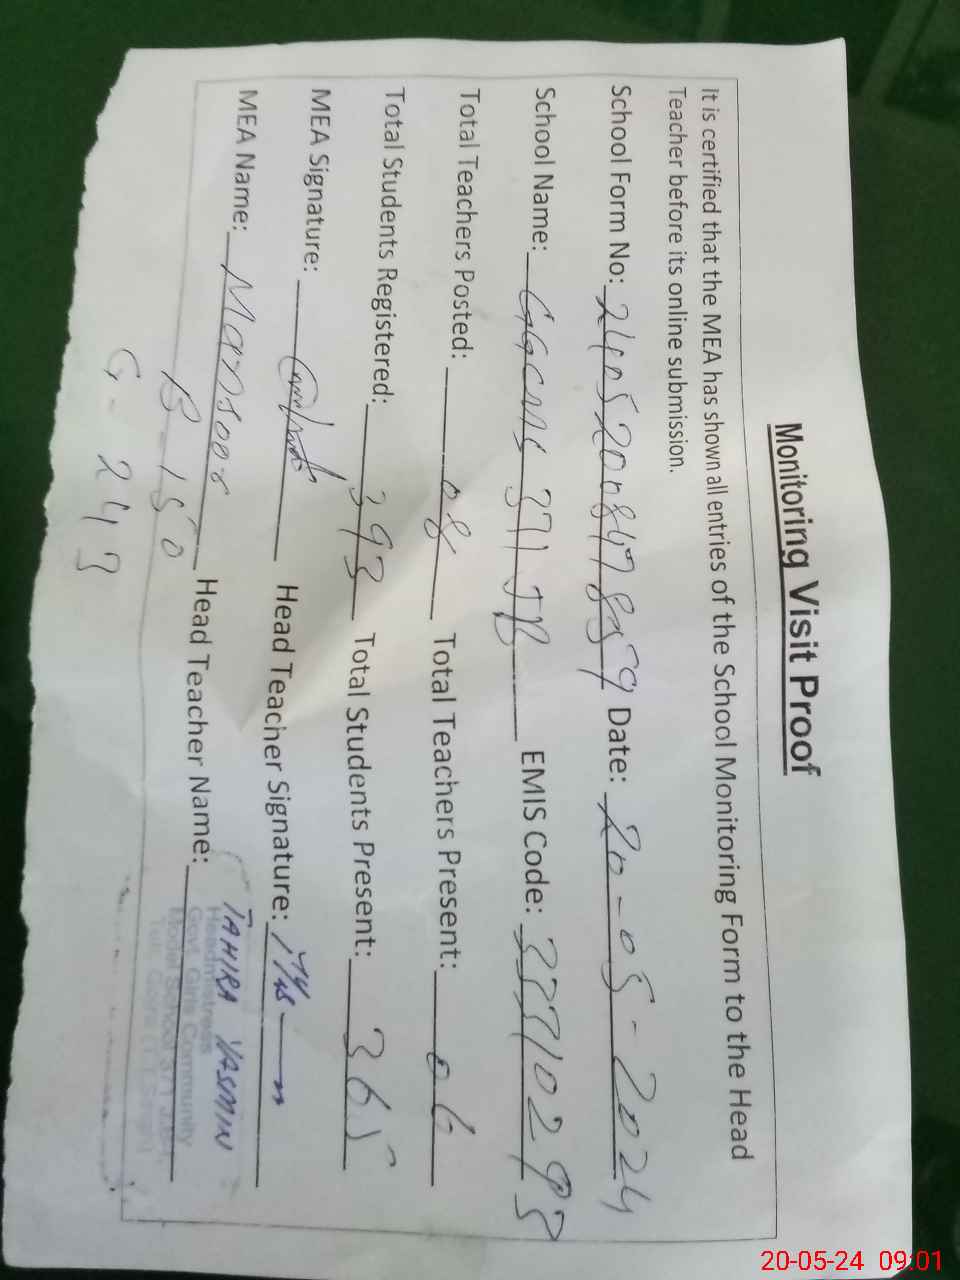 Monitoring Visit Proof
It is certified that the MEA has shown all entries of the School Monitoring Form to the Head
Teacher before its online submission.
School Form No: Date: 20-05-2024
School Name: GGCMS 371 JB EMIS Code:
Total Teachers Posted: 08 Total Teachers Present: 06
Total Students Registered: 393 Total Students Present: 365
MEA Signature: Head Teacher Signature:
MEA Name: Mansoor Head Teacher Name: TAHIRA YASMIN
Headmistress
Govt. Girls Community
Model School 371 J.B.
B-150
G-243
20-05-24 09:01